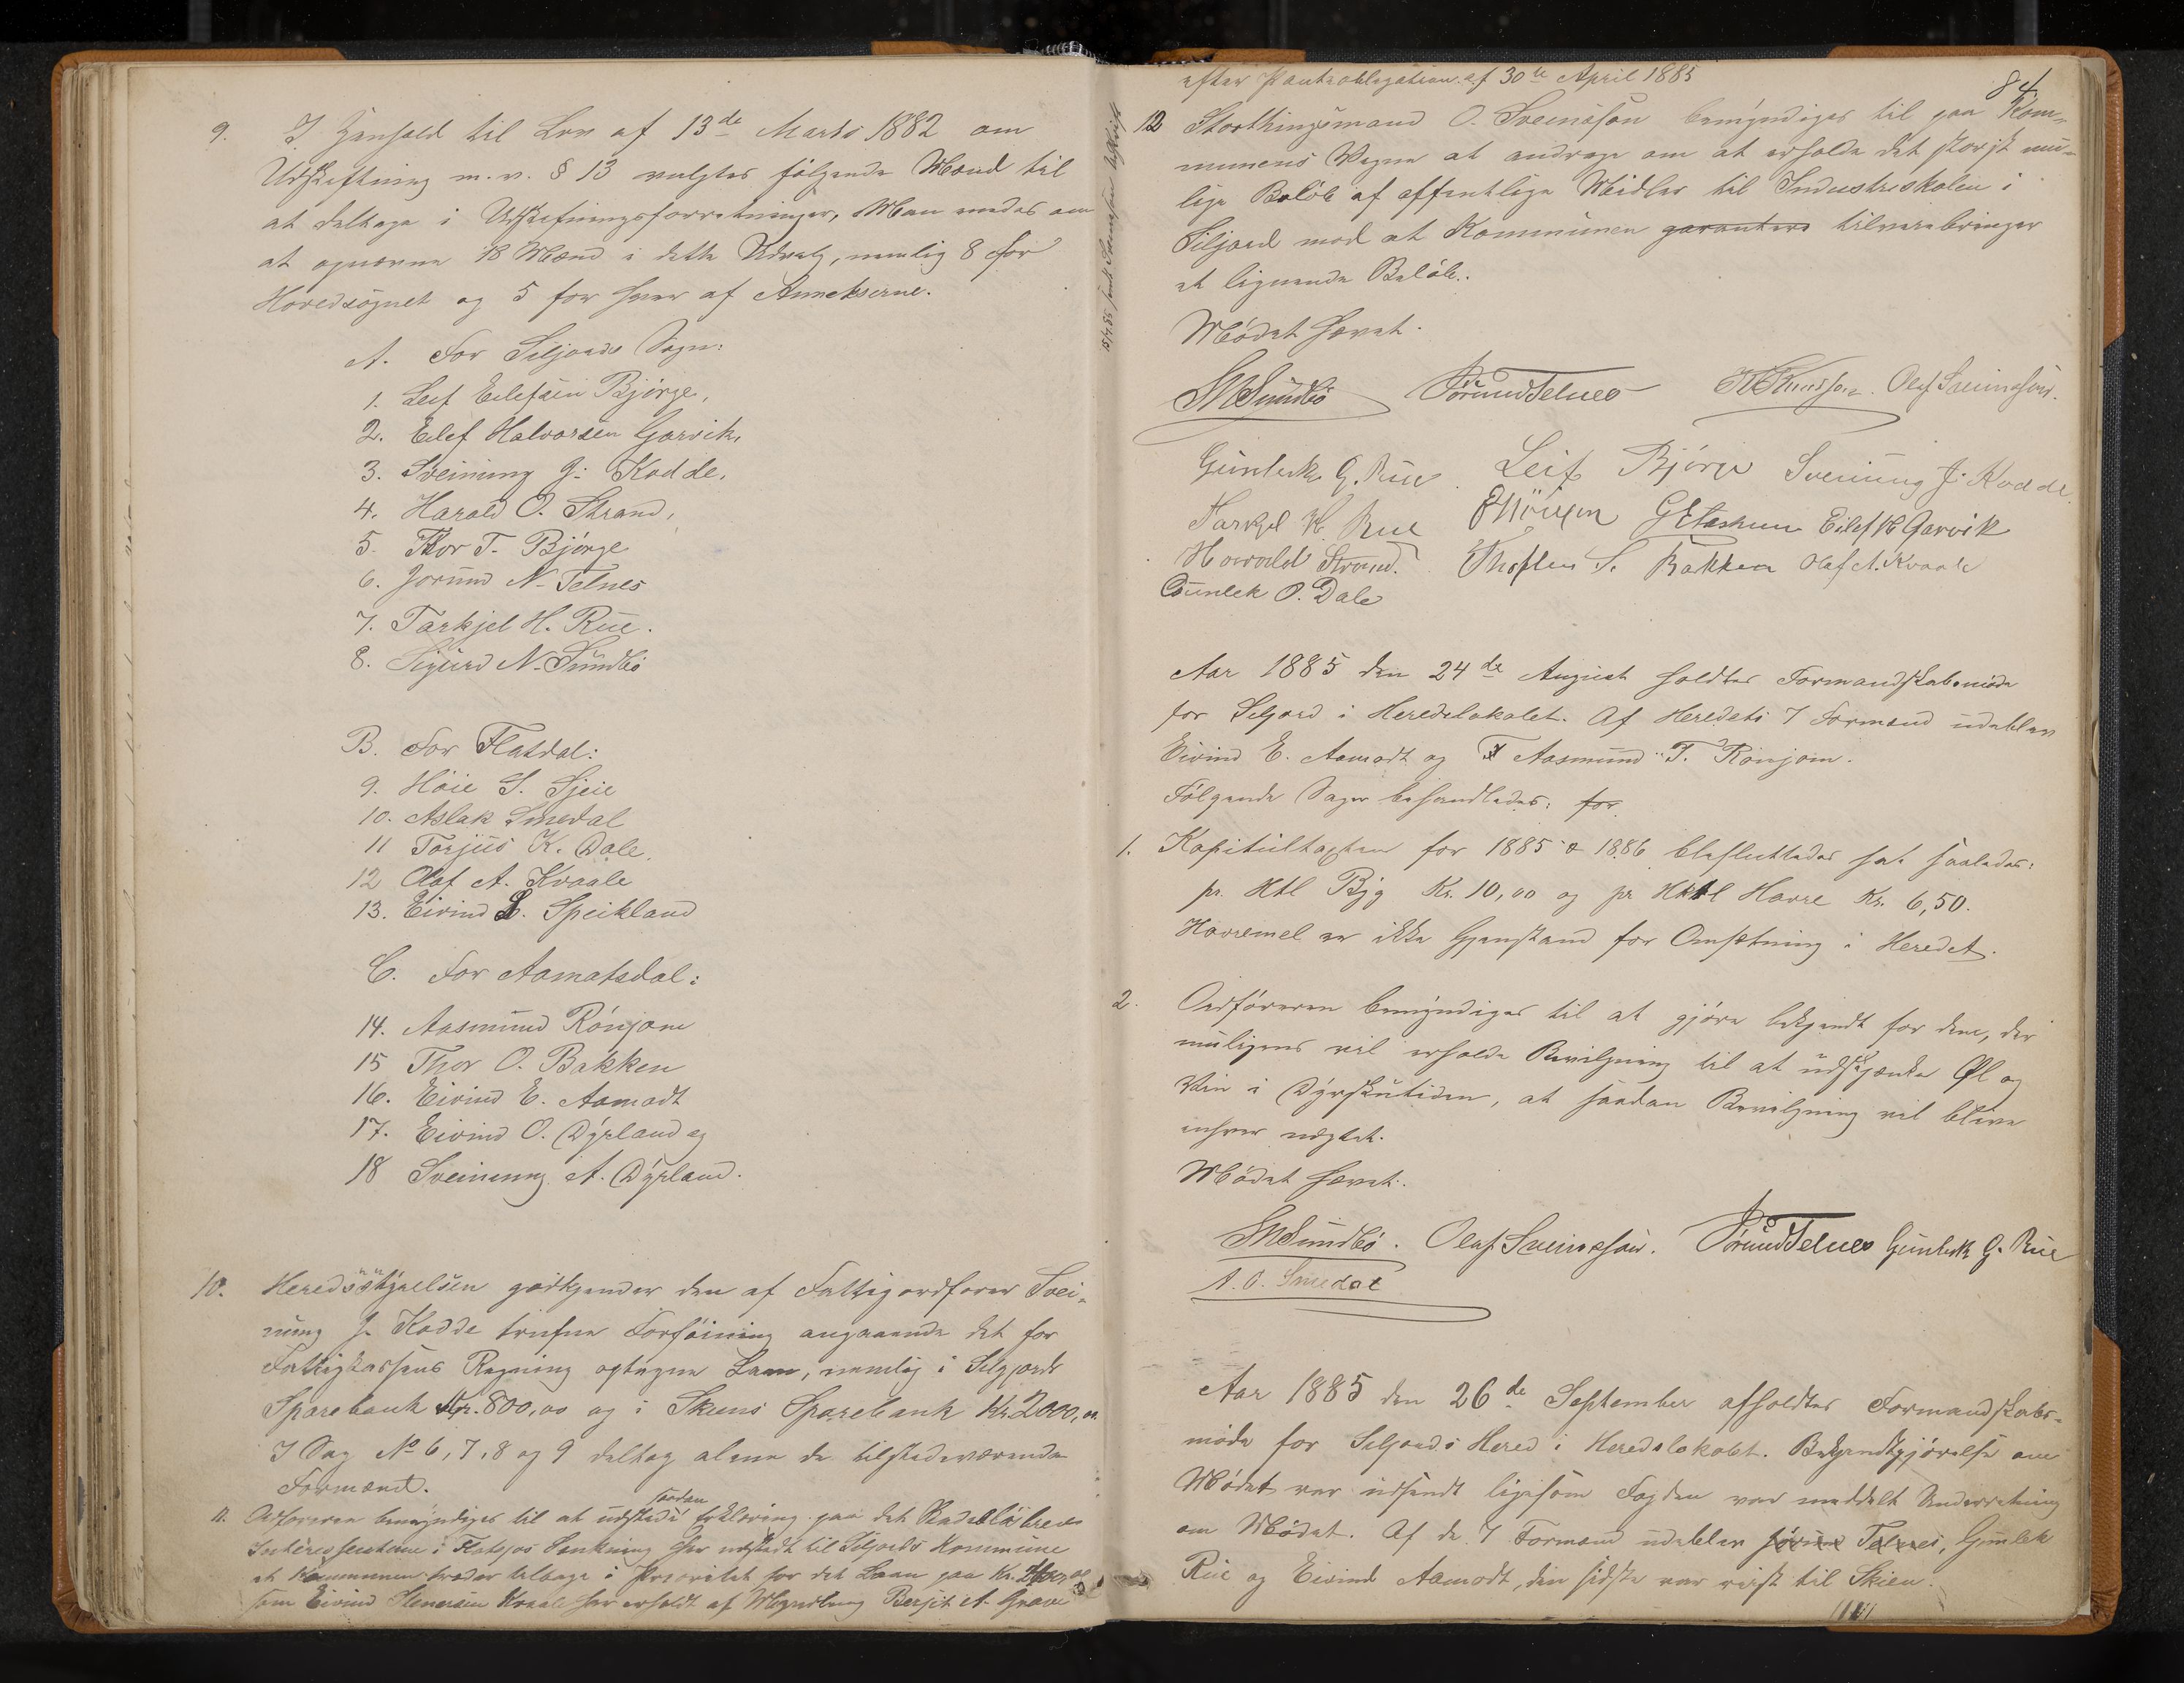 9. I Henhold til Lov af 13de Marts 1882 om
Udskiftning m. v. § 13 valgtes følgende Mænd til
at deltage i Udskiftningsforretninger, Man enedes om
at opnævne 18 Mænd i dette Udvalg, nemlig 8 for
Hovedsognet og 5 for hver af Annekserne.
A. For Siljords Sogn:
1. Leif Eilefsen Bjørge,
2. Eilef Halvorsen Garvik,
3. Sveinung J. Kodde,
4. Harald O. Strand,
5. Thor T. Bjørge
6. Jorund N. Telnes
7. Tarkjel H. Rue.
8. Sigurd N. Sundbø
B. For Flatdal:
9. Høie S.
10. Aslak Smedal
11 Torjus K. Dale,
12 Olaf A. Kvaale
13. Eivind L. Speikland
C. For Aamotsdal:
14. Aasmund Rónjom
15 Thor O. Bakken
16. Eivind E. Aamodt
17. Eivind O. Dýrland og
18 Sveinung A. Dýrland.
10. Heredsstýrelsen godkjender den af Fattigordfører Svei-
nung J. Kodde trufne Forføining angaaende det for
Fattigkassens Regning optagne Laan, nemlig i Selgjords
Sparebank Kr. 800,00 og i Skiens Sparebank Kr. 2000,00.
I Sag No 6, 7, 8 og 9 deltog alene de tilstedeværende
Formænd.
11. Ordføreren bemyndiges til at udstede saadan Erklæring paa det
Interessenterne i Flatsjøs Sænkning har udstedt til Siljords Kommune
at Kommunen træder tilbage i Prioritet for det Laan paa Kr.
som Eivind Kvaale har erholdt af Myndling Bergit A. Grave
efter Panteobligation af 30te April 1885
84
12 Storthingsmand O. Sveinsson bemýndiges til paa Kom-
munens Vegne at andrage om at erholde det størst mu-
lige Beløb af offentlige Midler til Industriskolen i
Siljord mod at Kommunen garantere tilveiebringer
et lignende Beløb.
Mødet hævet.
SNSundbø Jórund Telnes Olaf Sveinsson.
Gunleik G. Rue Leif Bjørge Sveinung J. Kodde.
Tarkjel H. Rue Eilef H Garvik
Harald Strand. S. Bakken Olaf A. Kvaale
Gunlek O. Dale
Aar 1885 den 24de August holdtes Formandskabsmøde
for Seljord i Heredslokalet. Af Heredets 7 Formænd udeblev
Eivind E. Aamodt og Aasmund T. Rónjom.
Følgende Sager behandledes: for
1. Kapitelstaxten for 1885 & 1886 besluttedes sat saaledes:
pr. Htl Býg Kr. 10,00 og pr Htl Havre Kr. 6,50.
Havremel er ikke Gjenstand for Omsætning i Heredet.
2. Ordføreren bemýndiges til at gjøre bekjendt for dem, der
muligens vil erholde Bevilgning til at udskjænke Øl og
Vin i Dýrskutiden, at saadan Bevilgning vil blive
enhver nægtet.
Mødet hævet.
SNSundbø. Olaf Sveinsson. Jórund Telnes Gunleik G. Rue
A. O. Smedal
Aar 1885 den 26de September afholdtes Formandskabs-
møde for Seljords Hered i Heredslokalet. Bekjendtgjørelse om
Mødet var udsendt ligesom Fogden var meddelt Underretning
om Mødet. Af de 7 Formænd udeblev Jórund Telnes, Gunlek
Rue og Eivind Aamodt, den sidste var reist til Skien.